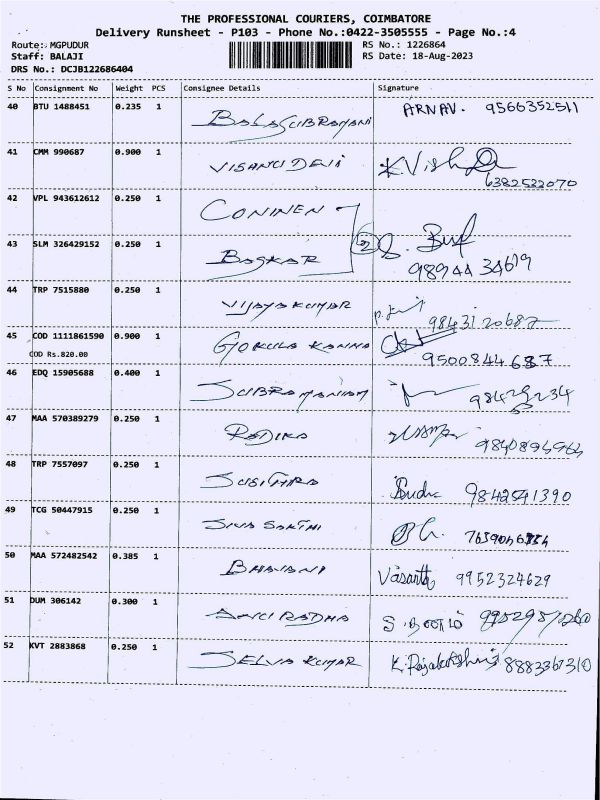 THE PROFESSIONAL COURIERS, COIMBATORE
Delivery Runsheet - P103 - Phone No.:0422-3505555 - Page No.:4
Route: MGPUDUR RS No.: 1226864
Staff: BALAJI RS Date: 18-Aug-2023
DRS No.: DCJB122686404
S No Consignment No Weight PCS Consignee Details Signature
40 BTU 1488451 0.235 1 BALASUBRAMANI ARNAV. 9566352511
41 CMM 990687 0.900 1 VISANU DEVI K.Vish
6382532070
42 VPL 943612612 0.250 1 CONINEN
43 SLM 326429152 0.250 1 BASKAR 2
98944 34619
44 TRP 7515880 0.250 1 VIJAYAKUMAR 9843120687
45 COD 1111861590 0.900 1 GOKULA KANNA
COD Rs.820.00 9500844687
46 EDQ 15905688 0.400 1 SUBRAMANIAM
47 MAA 570389279 0.250 1 RADIKA
48 TRP 7557097 0.250 1 SUSITHRA Sudha 9842541390
49 TCG 50447915 0.250 1 SIVA SAKTHI
50 MAA 572482542 0.385 1 BHAVANI Vasanth 9952324629
51 DUM 306142 0.300 1 ANURADHA
52 KVT 2883868 0.250 1 SELVA KUMAR 8883367310